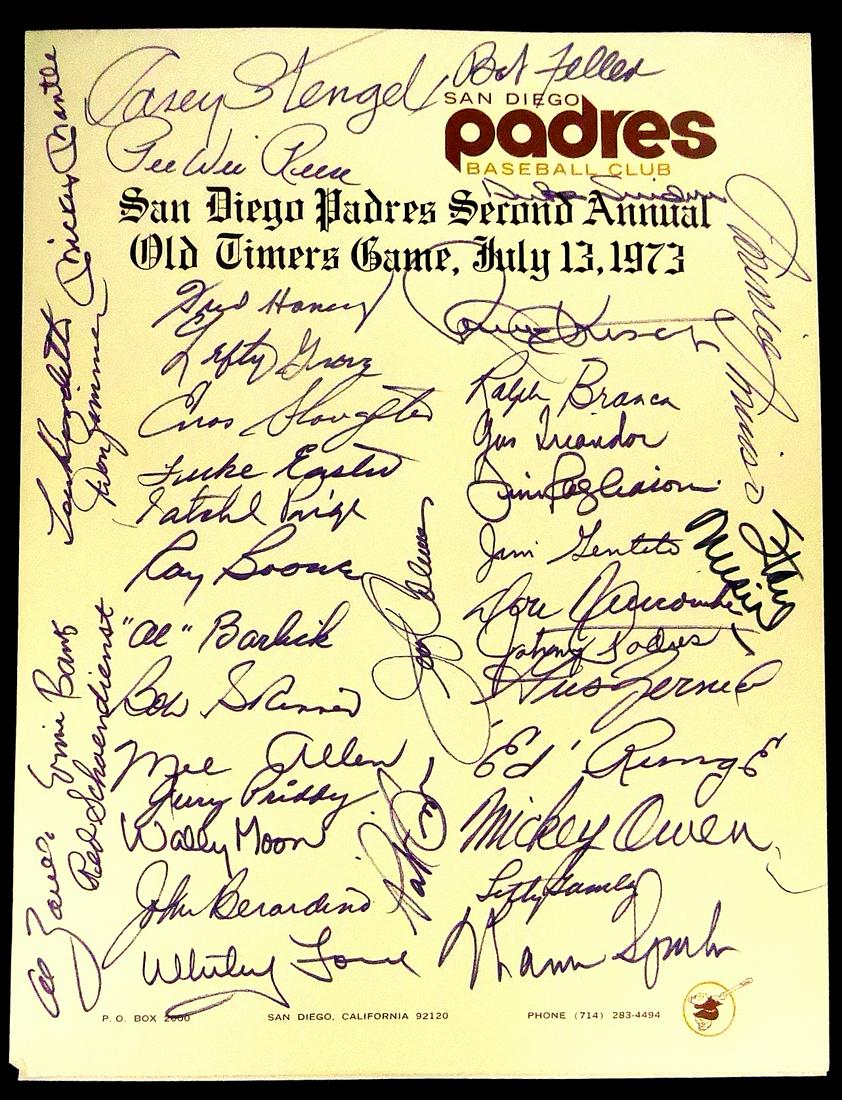 Casey Stengel
Bob Feller
SAN DIEGO
padres
BASEBALL CLUB
Pee Wee Reese
Duke Snider
San Diego Padres Second Annual
Old Timers Game, July 13, 1973
Mickey Mantle
Don Zimmer
Minnie Minoso
Fred Haney
Lefty Grove
Enos Slaughter
Luke Easter
Satchel Paige
Ray Boone
"Al" Barlick
Bob Skinner
Mel Allen
Jerry Priddy
Wally Moon
John Berardino
Whitey Ford
Ralph Branca
Gus Triandos
Jim Pagliaroni
Jim Gentile
Don Newcombe
Johnny Podres
Gus Zernial
"Ed" Runge
Mickey Owen
Lefty Gomez
Warren Spahn
Stan Musial
Ernie Banks
Red Schoendienst
Al Zarilla
P. O. BOX 2000
SAN DIEGO, CALIFORNIA 92120
PHONE (714) 283-4494